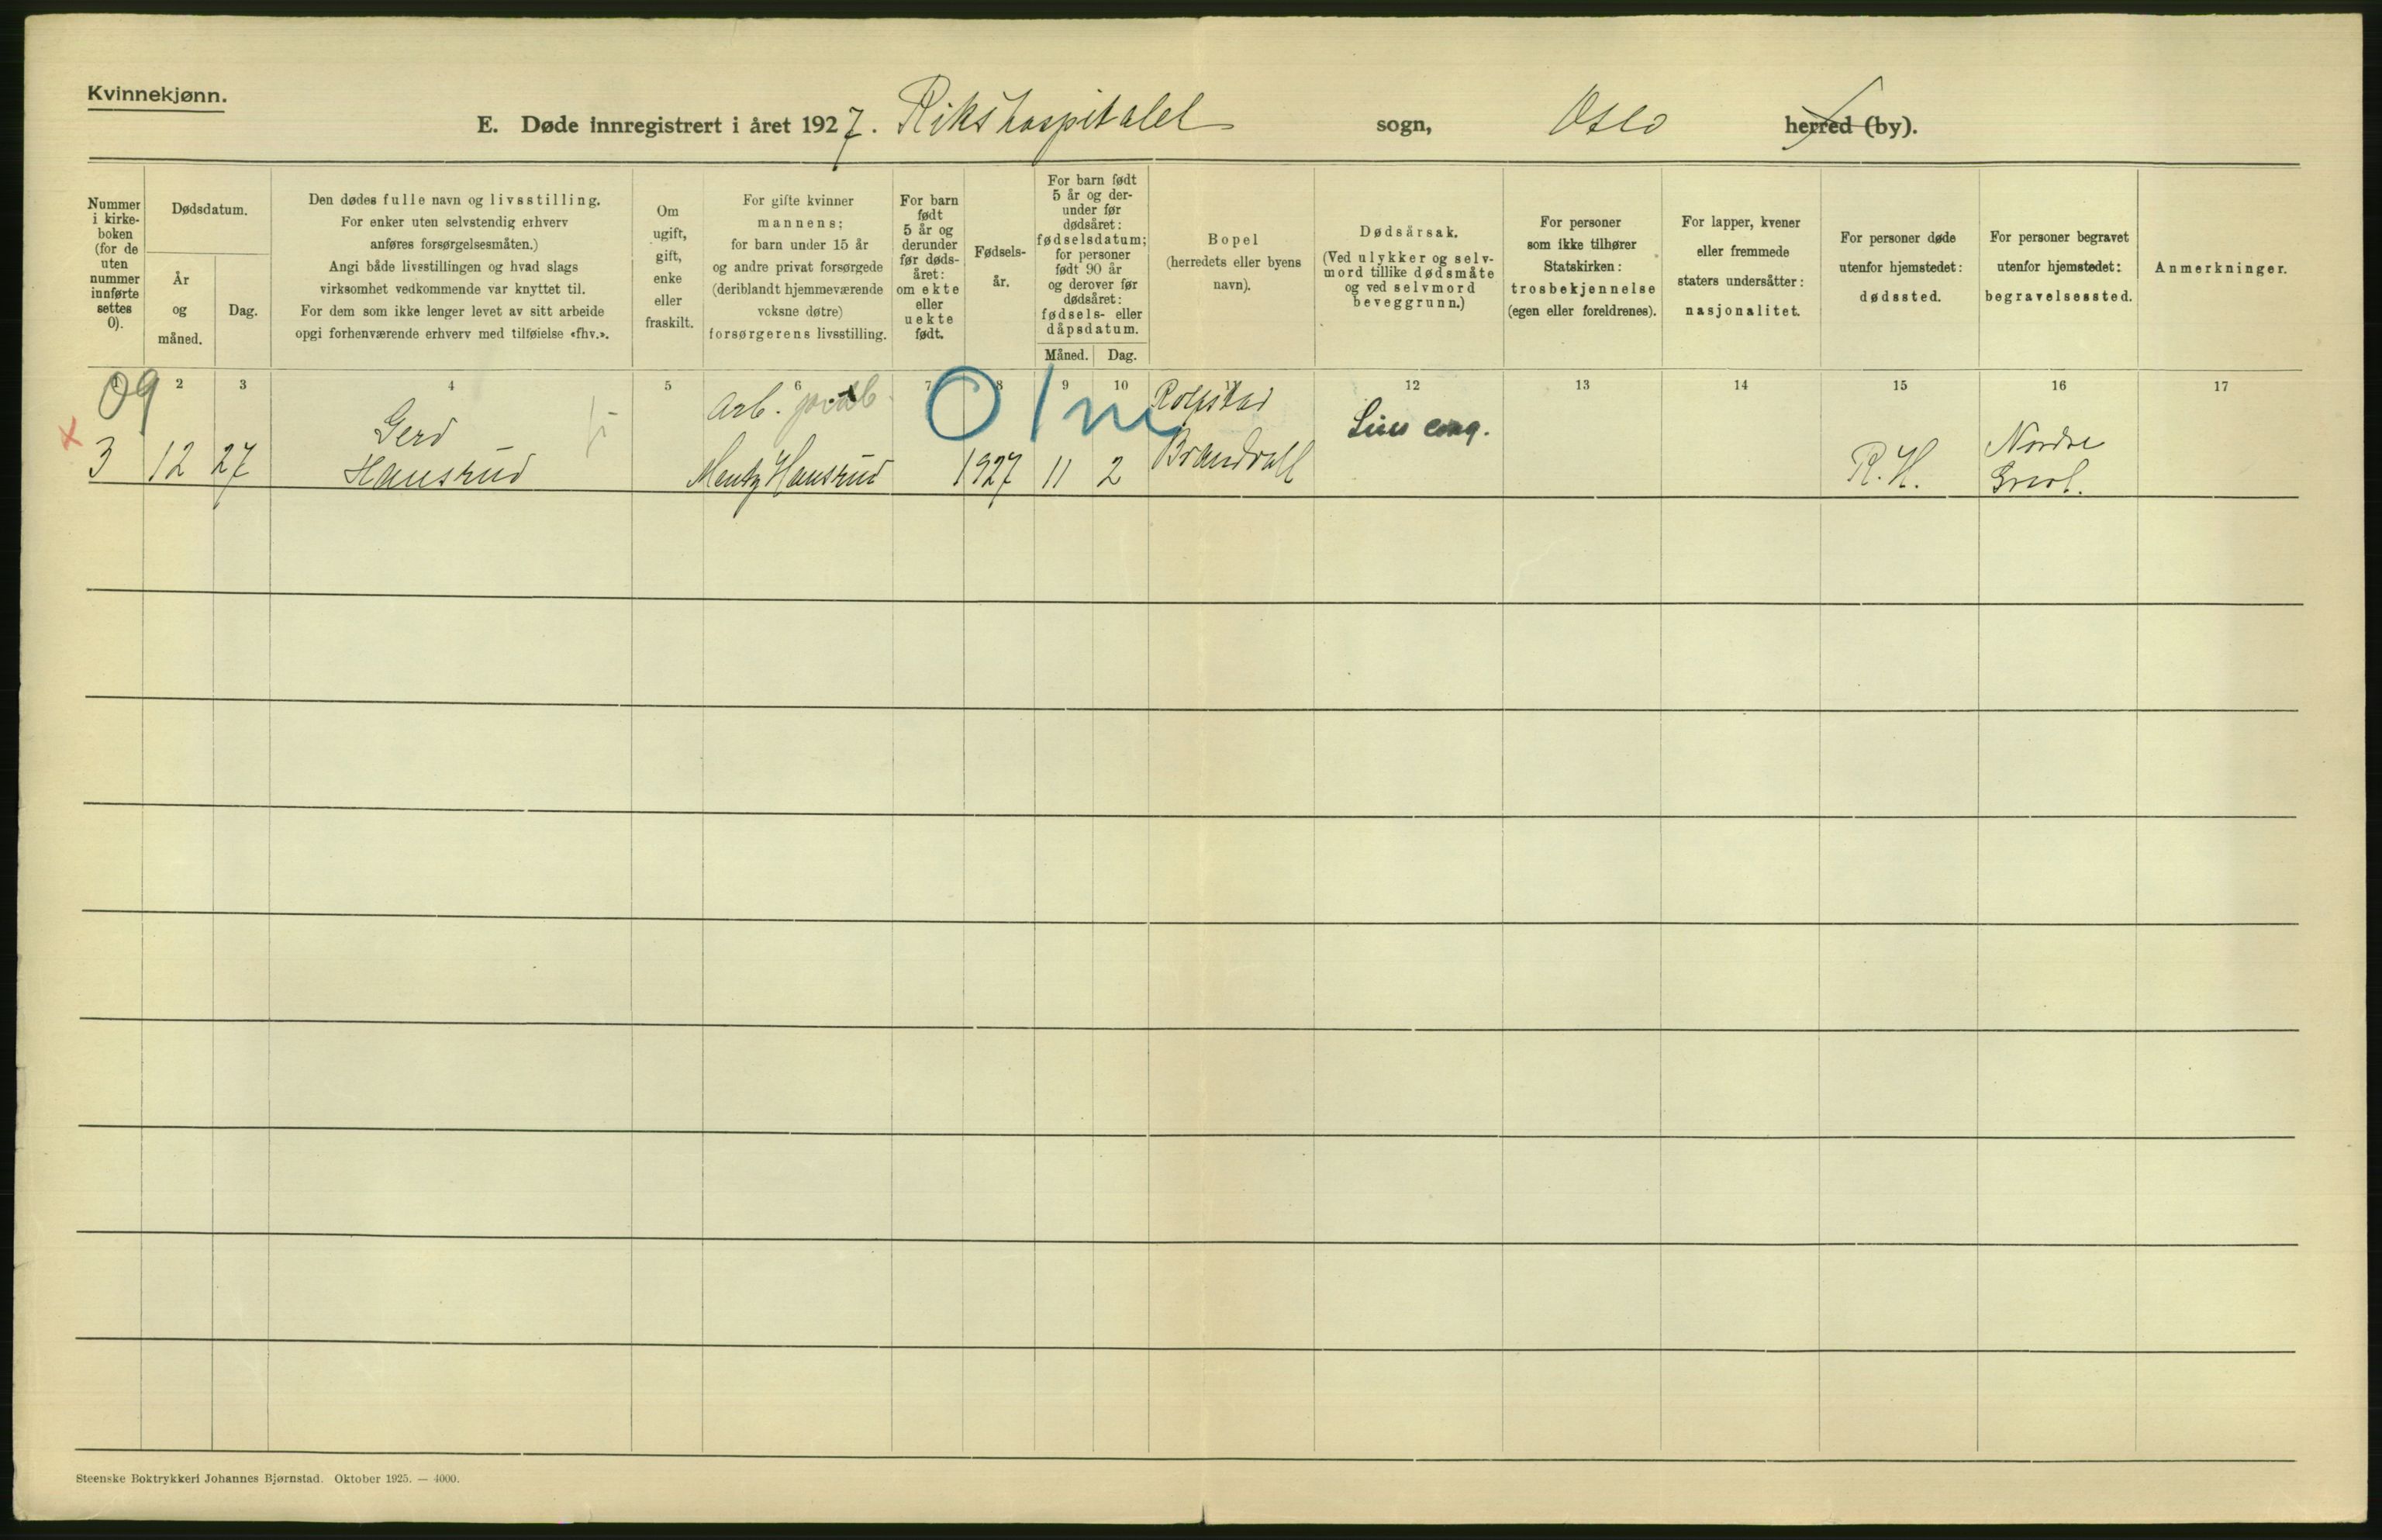 Kvinnekjønn.
E. Døde innregistrert i året 1927. Rikshospitalet sogn, Oslo herred (by).
Nummer
i kirke-
boken
(for de
uten
nummer
innførte
settes
0).
Dødsdatum.
År
og
måned.
Dag.
Den dødes fulle navn og livsstilling.
For enker uten selvstendig erhverv
anføres forsørgelsesmåten.)
Angi både livsstillingen og hvad slags
virksomhet vedkommende var knyttet til.
For dem som ikke lenger levet av sitt arbeide
opgi forhenværende erhverv med tilføielse «fhv.».
Om
ugift,
gift,
enke
eller
fraskilt.
For gifte kvinner
mannens;
for barn under 15 år
og andre privat forsørgede
(deriblandt hjemmeværende
voksne døtre)
forsørgerens livsstilling.
For barn
født
5 år og
derunder
før døds-
året:
om ekte
eller
uekte
født.
Fødsels-
år.
For barn født
5 år og der-
under før
dødsåret:
fødselsdatum;
for personer
født 90 år
og derover før
dødsåret:
fødsels- eller
dåpsdatum.
Måned. Dag.
Bopel
(herredets eller byens
navn).
Dødsårsak.
(Ved ulykker og selv-
mord tillike dødsmåte
og ved selvmord
beveggrunn.)
For personer
som ikke tilhører
Statskirken:
trosbekjennelse
(egen eller foreldrenes).
For lapper, kvener
eller fremmede
staters undersåtter:
nasjonalitet.
For personer døde
utenfor hjemstedet:
dødssted.
For personer begravet
utenfor hjemstedet:
begravelsessted.
Anmerkninger.
1 2 3 4 5 6 7 8 9 10 11 12 13 14 15 16 17
09 Arb. 01m Rolfstad
Gerd Nordre
3 12 27 Hansrud Mentz Hansrud 1927 11 2 Brandvall R.H.
Steenske Boktrykkeri Johannes Bjørnstad. Oktober 1925. — 4000.